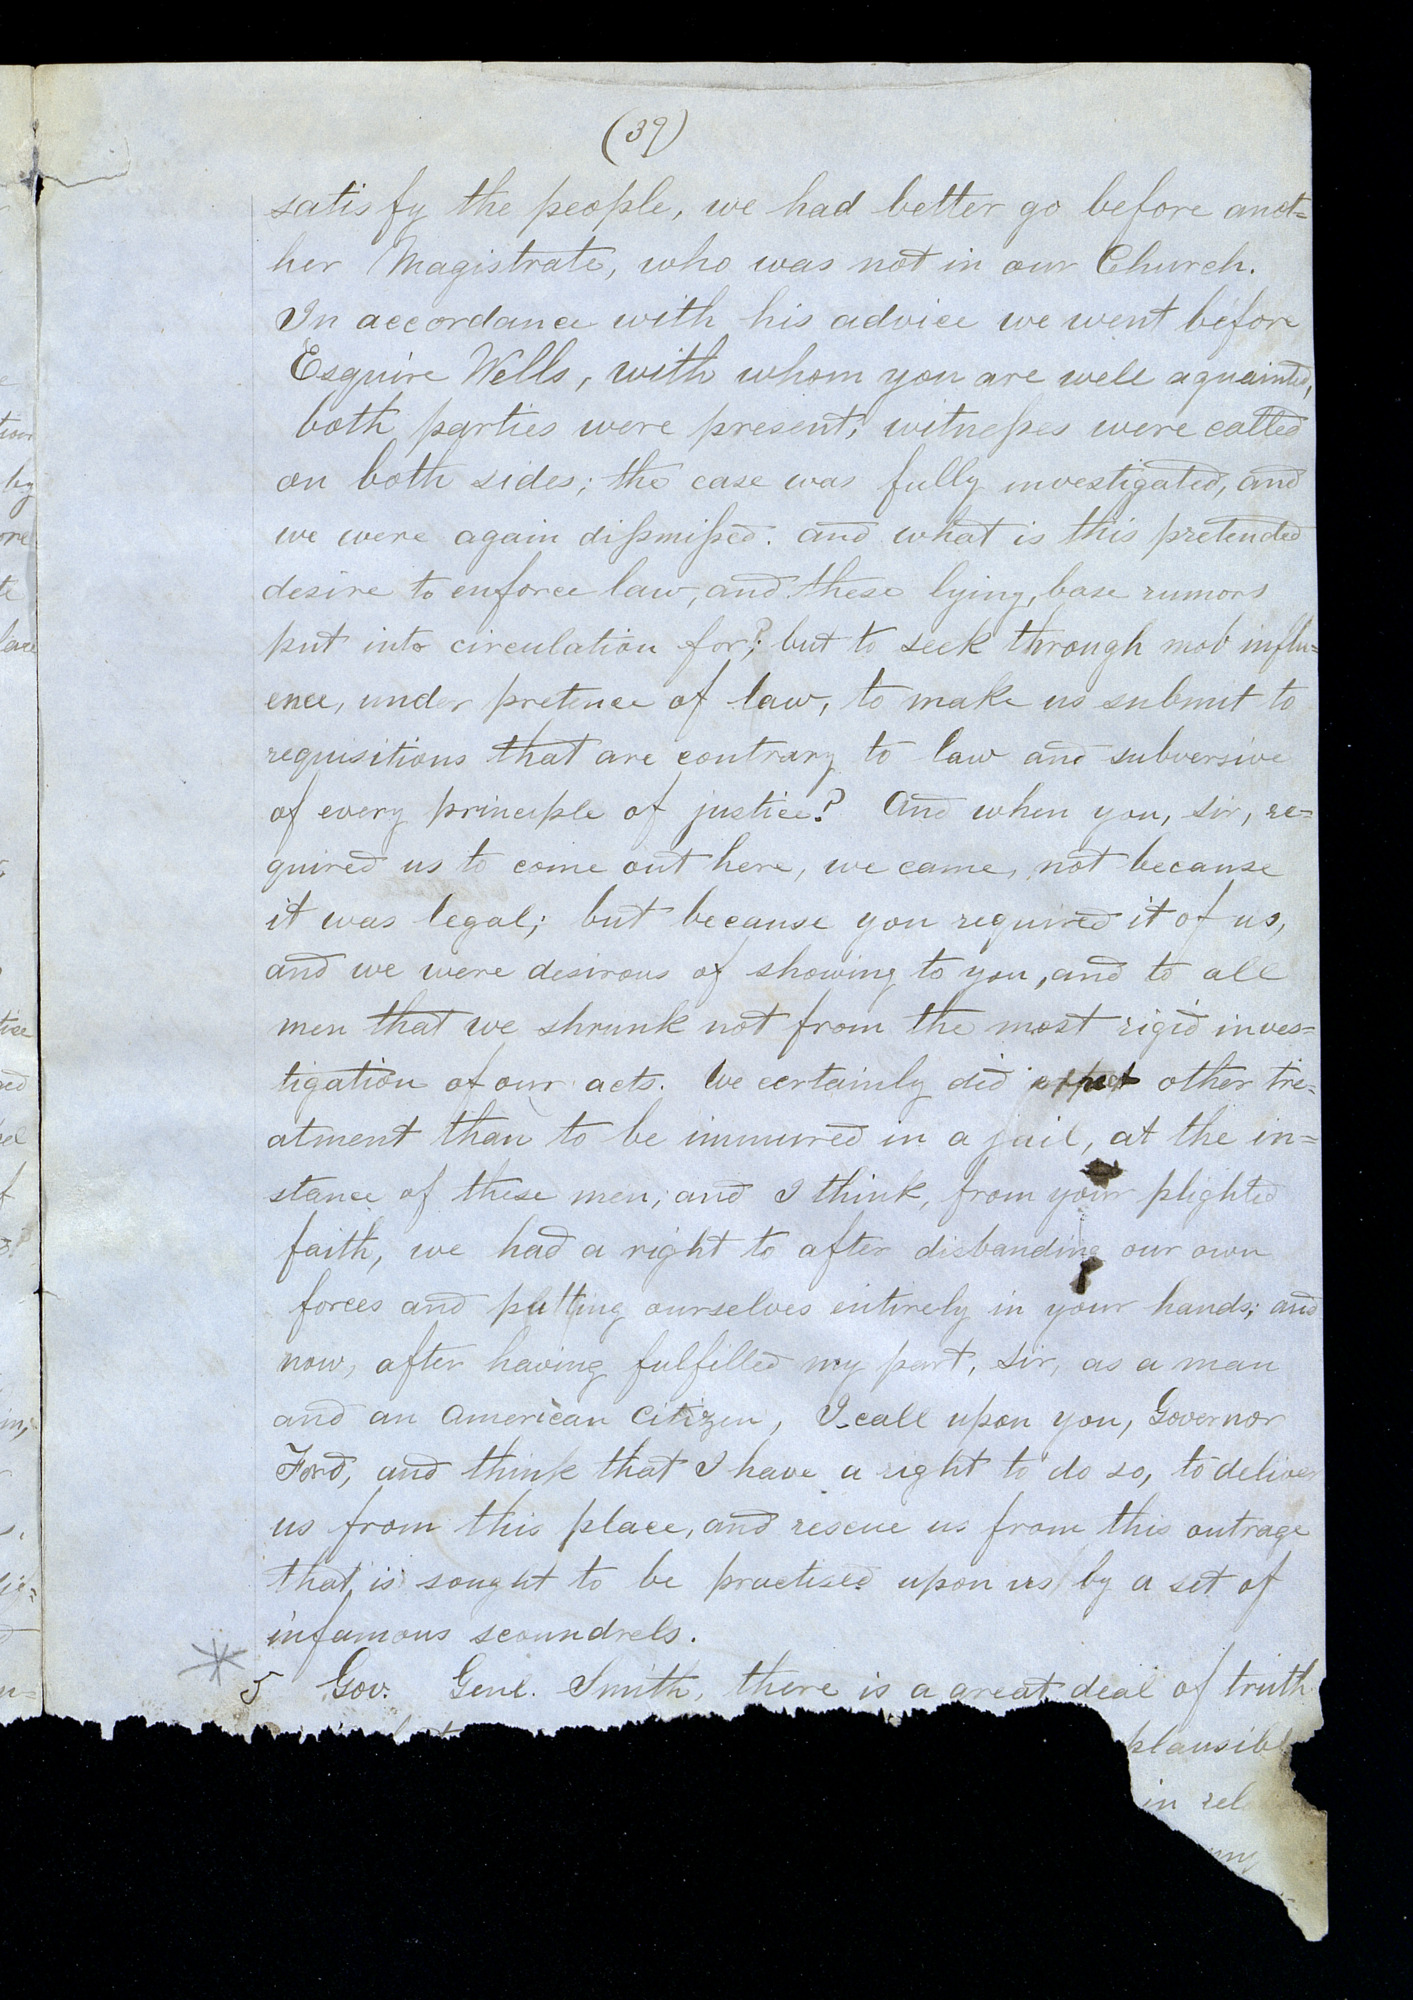 (39)
satisfy the people, we had better go before anot=
her Magistrate, who was not in our Church.
In accordance with his advice we went before
Esquire Wells, with whom you are well aquainted,
both parties were present; witnesses were called
on both sides; the case was fully investigated, and
we were again dissmissed. and what is this pretended
desire to enforce law, and these lying, base rumors
put into circulation for?; but to seek through mob influ=
ence, under pretence of law, to make us submit to
requisitions that are contrary to law and subversive
of every principle of justice? And when you, sir, re=
quired us to come out here, we came, not because
it was legal; but because you required it of us,
and we were desirous of showing to you, and to all
men that we shrunk not from the most rigid inves=
tigation of our acts. We certainly did expect other tre=
atment than to be immured in a jail, at the in=
stance of these men; and I think, from your plighted
faith, we had a right to after disbanding our own
forces and putting ourselves entirely in your hands; and
now, after having fulfilled my part, sir, as a man
and an American citizen, I call upon you, Governor
Ford, and think that I have a right to do so, to deliver
us from this place, and rescue us from this outrage
that is sought to be practised upon us by a set of
infamous scoundrels.
5 Gov. Genl. Smith, there is a great deal of truth
plausibl
in rel